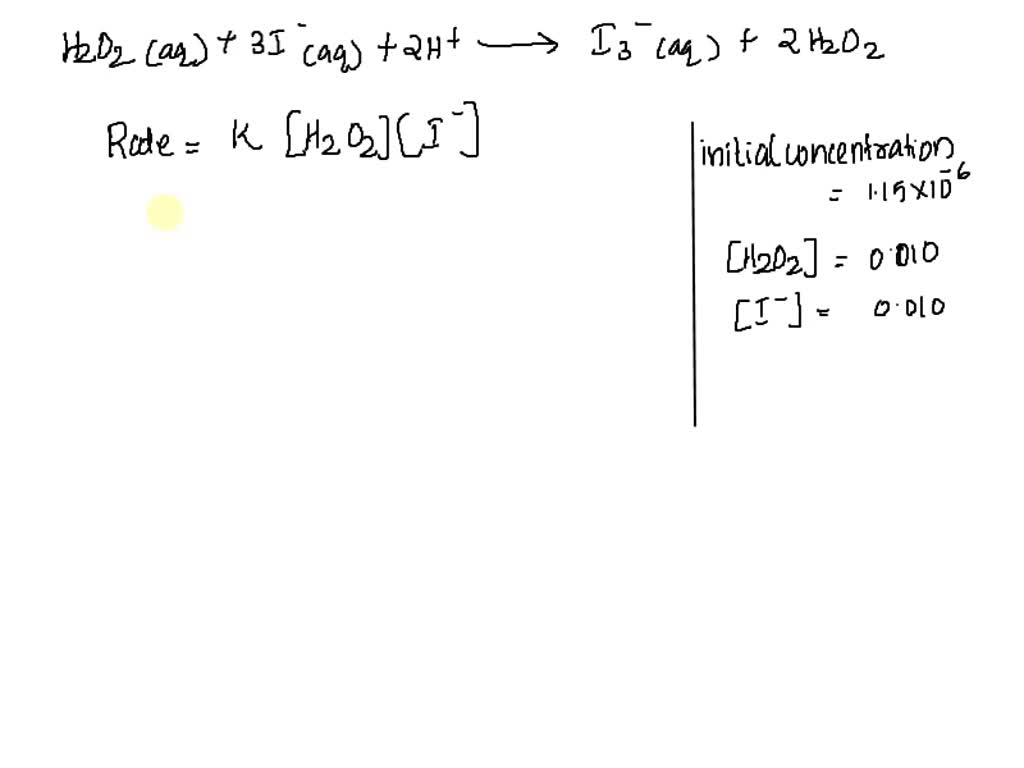 H2O2 (aq) + 3I⁻ (aq) + 2H⁺ ⟶ I3⁻ (aq) + 2H2O2
Rate = K [H2O2][I⁻]
initial concentration
= 1.15×10⁻⁶
[H2O2] = 0.010
[I⁻] = 0.010